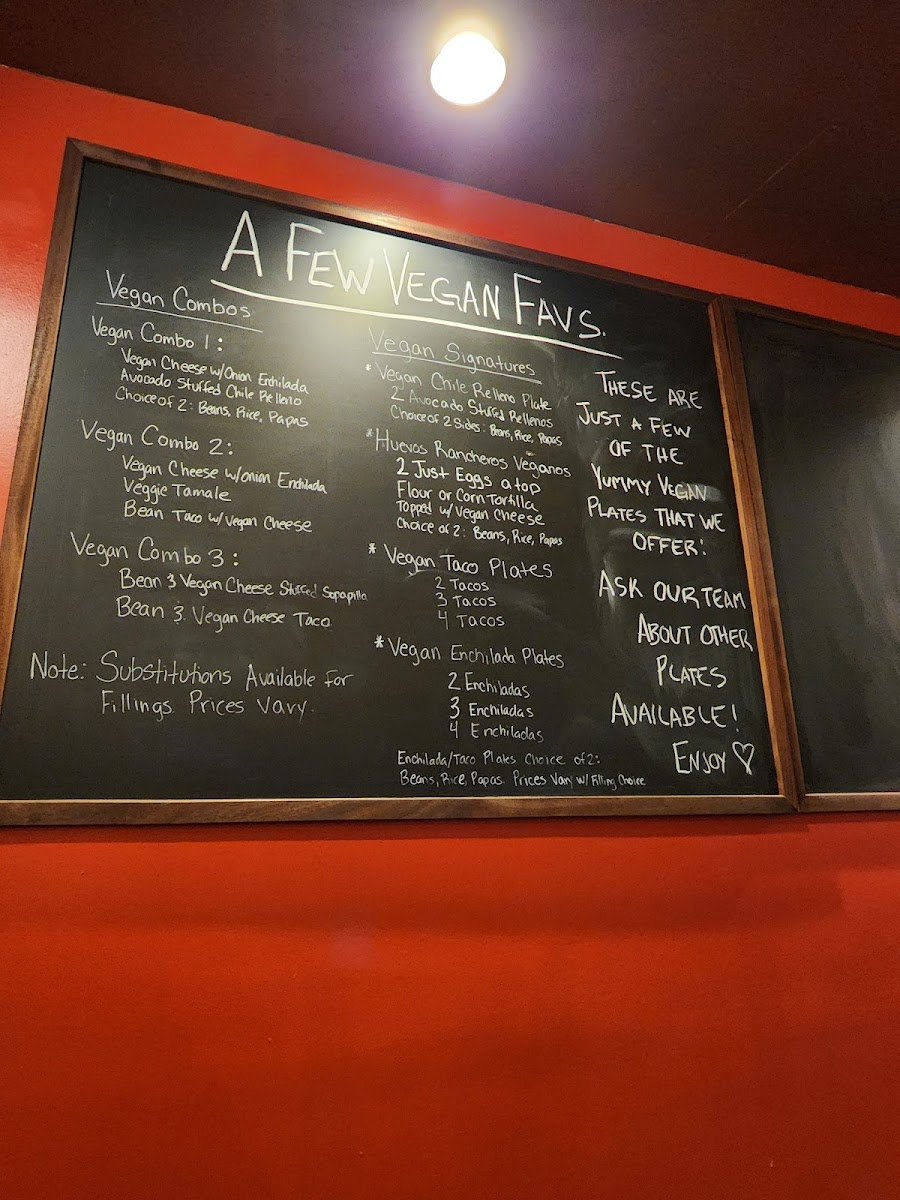 A FEW VEGAN FAVS.
Vegan Combos
Vegan Combo 1:
Vegan Cheese w/Onion Enchilada
Avocado Stuffed Chile Relleno
Choice of 2: Beans, Rice, Papas
Vegan Combo 2:
Vegan Cheese w/onion Enchilada
Veggie Tamale
Bean Taco w/ Vegan Cheese
Vegan Combo 3:
Bean & Vegan Cheese Stuffed Sopapilla
Bean & Vegan Cheese Taco
Note: Substitutions Available for
Fillings. Prices Vary.
Vegan Signatures
* Vegan Chile Relleno Plate
2 Avocado Stuffed Rellenos
Choice of 2 Sides: Beans, Rice, Papas
* Huevos Rancheros Veganos
2 Just Eggs atop
Flour or Corn Tortilla
Topped w/ Vegan Cheese
Choice of 2: Beans, Rice, Papas
* Vegan Taco Plates
2 Tacos
3 Tacos
4 Tacos
* Vegan Enchilada Plates
2 Enchiladas
3 Enchiladas
4 Enchiladas
Enchilada/Taco Plates Choice of 2:
Beans, Rice, Papas. Prices Vary w/ Filling Choice
THESE ARE
JUST A FEW
OF THE
YUMMY VEGAN
PLATES THAT WE
OFFER!
ASK OUR TEAM
ABOUT OTHER
PLATES
AVAILABLE!
ENJOY ♡